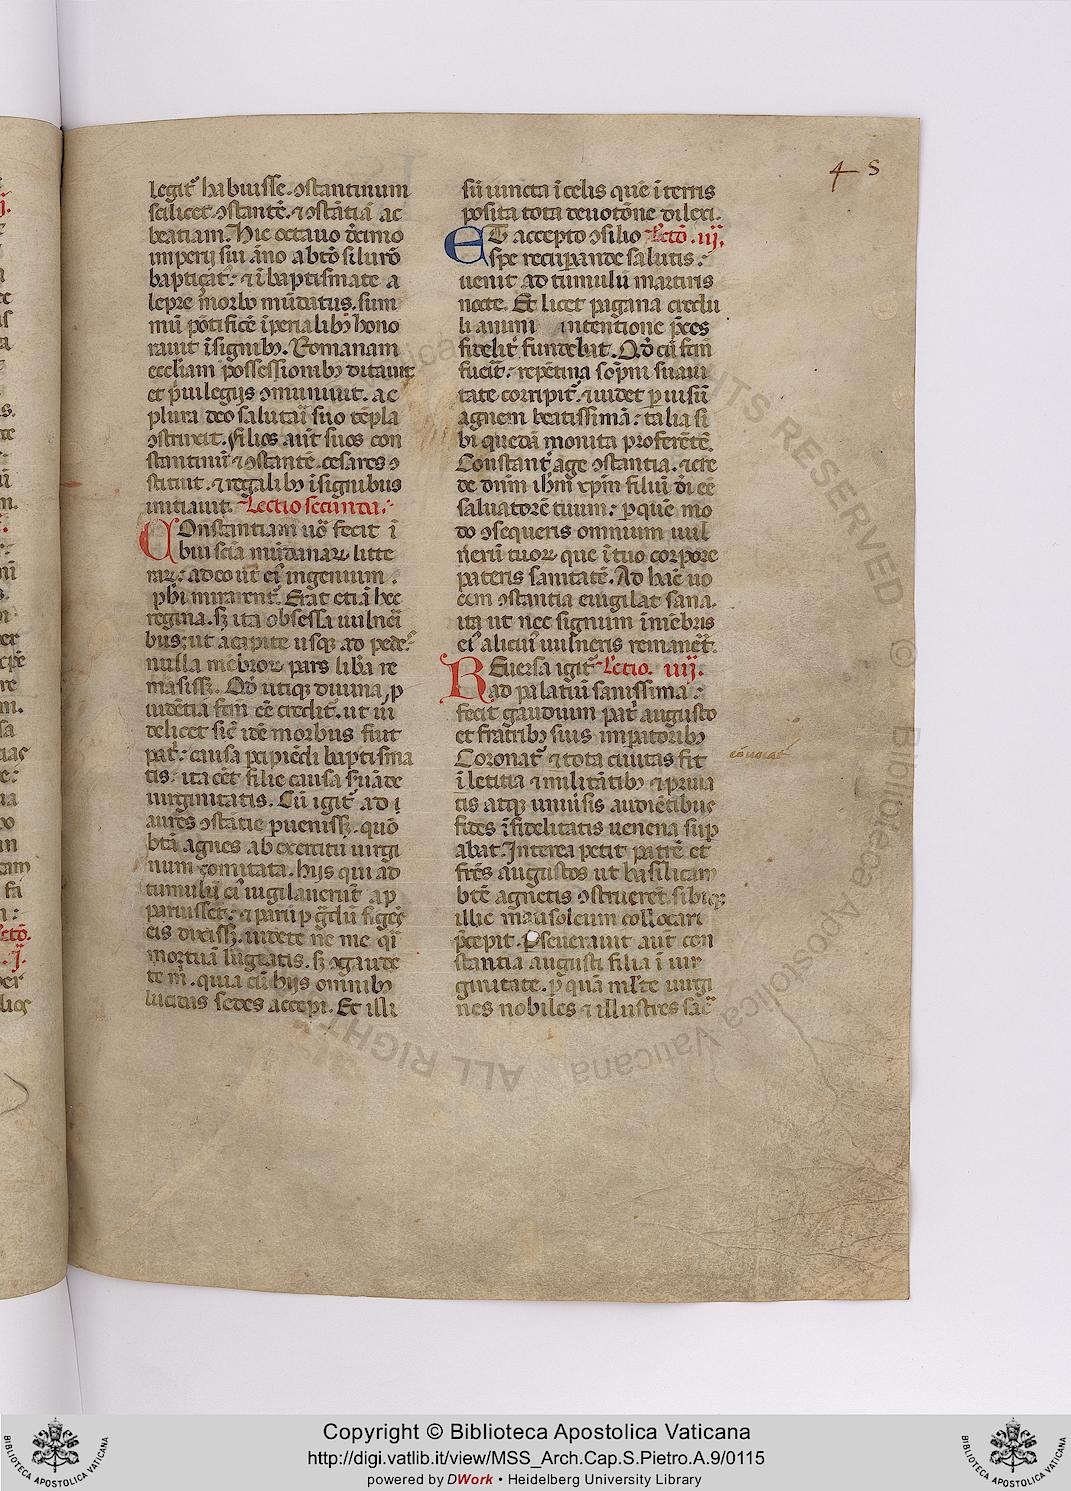 4 5
legit᷑ habuisse. ꝯstantinum
scilicet. ꝯstantē. ⁊ ꝯstātiā ac
beatiam. Hic octauo decimo
imperij sui āno a btō silurō
baptiçat᷑: ⁊ ī baptismate a
lepre morbo mūdatus. sum
mū pōtificē īperialibꝫ hono
rauit īsignibꝫ. Romanam
eccl̄iam possessionibꝫ ditauit
et p̄uilegijs ꝯmuniuit. ac
plura deo saluta᷑i suo tēpla
ꝯstruxit. Filios aut̄ suos con
stantinū ⁊ ꝯstantē. cesares ꝯ
stituit. ⁊ regalibꝫ īsignibus
initiauit. Lectio secunda.
COnstantiam uō fecit ī
bui sciā mūdanaꝝ litte
raꝝ: adeo ut ei᷑ ingenium.
ph̄i mirarent᷑. Erat etiā hec
regina. sꝫ ita obsessa uulnei᷑
bus: ut a capite usqꝫ ad pedes
nulla mēbroꝝ pars lib̄a re
māsissꝫ. Qd̄ utiqꝫ diuina ꝓ
uidētia fcm̄ eē credit᷑. ut ui
delicet sic̄ idē morbus fuit
pat᷑: causa pcipiēdi baptisma
tis: ita cēt filie causa s̄uāde
uirginitatis. Cū igit᷑ ad i
aures ꝯstātie puenissꝫ. quō
btā agnes ab exercitu uirgi
num comitata. hijs qui ad
tumulū ei᷑ uigilauerūt ap
paruisset: ⁊ parū p g̃dū figēs
eis dixissꝫ. uidete ne me q̄i
mortuā lugeatis. sꝫ ꝯgaude
te m̄. quia cū hijs omnibꝫ
lucidas sedes accepi. Et illi
sū iuncta ī celis quē ī terris
posita tota deuotōne dilexi.
ET accepto ꝯsilio Lectō. iij.
spe recup̄ande salutis:
uenit ad tumulū martiris
nocte. Et licet pagana credu
li animi intentione p̄ces
fidelit᷑ fundebat. Qd̄ cū fcm̄
fuēt: repētina sop̄ni suaui
tate corripit᷑. ⁊ uidet p uisū
agnem beatissimā: talia si
bi quedā monita proferētē.
Constant᷑ age ꝯstantia. ⁊ cre
de dnm̄ ihm̄ xp̄m filiū dī eē
saluatorē tuum: ꝑ quē mo
do ꝯsequeris omnium uul
nerū tuoꝝ que ī tuo corpore
pateris sanitatē. Ad hāc uo
cem ꝯstantia euigilat sana.
ita ut nec signum ī mēbris
ei᷑ alicui᷑ uulneris remanēt.
REuersa igit᷑ Lectio. iiij.
ad palatiū sanissima:
fecit gaudium pat᷑ augusto
et fratribꝫ suis imp̄atoribꝫ
Coronat᷑ ⁊ tota ciuitas fit
ī letitia ⁊ militātibꝫ ⁊ priua
tis atqꝫ uniu᷑sis audiētibus
fides īfidelitatis uenena sup
abat. Interea petit patrē et
frēs augustos ut basilicam
btē agnetis ꝯstrueret. sibiqꝫ
illic mausoleum collocari
p̄cepit. Pseuerauit aut̄ con
stantia augusti filia ī uir
ginitate. p quā ml̄te uirgi
nes nobiles ⁊ illustres sac᷑
Copyright © Biblioteca Apostolica Vaticana
http://digi.vatlib.it/view/MSS_Arch.Cap.S.Pietro.A.9/0115
powered by DWork • Heidelberg University Library
BIBLIOTECA APOSTOLICA VATICANA
BIBLIOTECA APOSTOLICA VATICANA